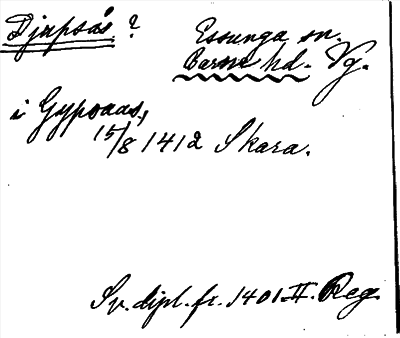 Djupsås ?
Essunga sn.
Barne hd. Vg.
i Gypsaas,
15/8 1412 Skara.
Sv. dipl. fr. 1401 II. Reg.